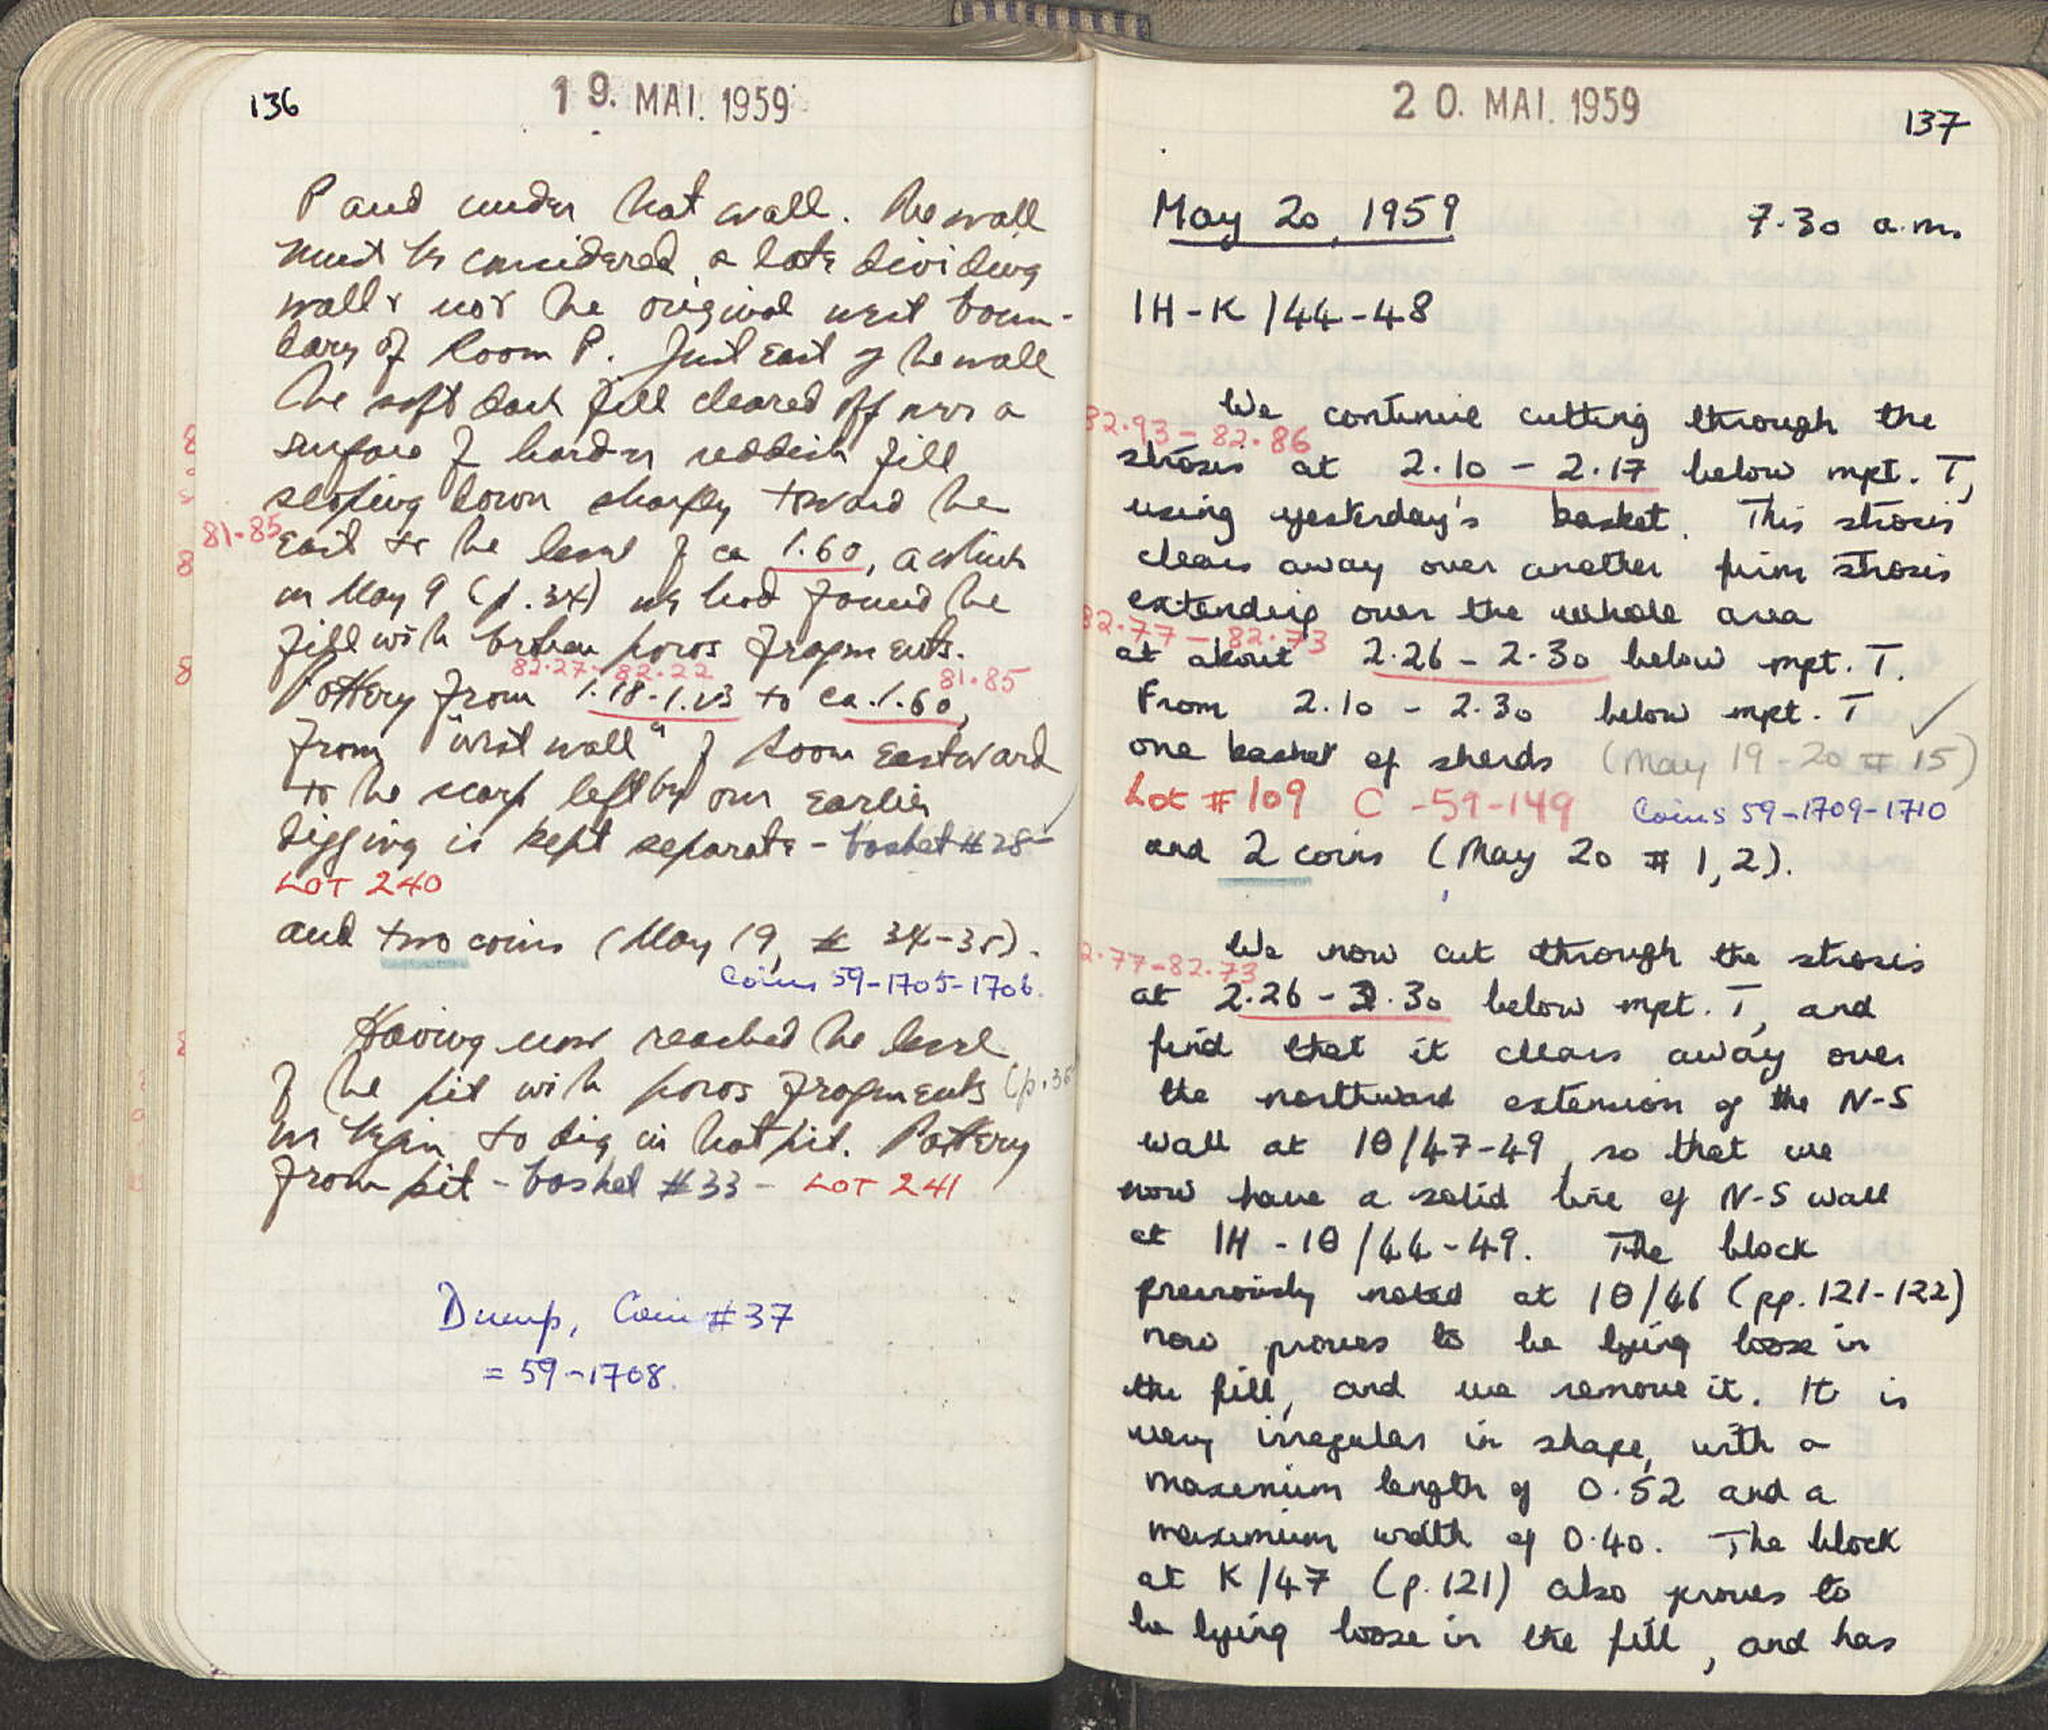 136
19. MAI. 1959
P and under that wall. The wall
must be considered a late dividing
wall & not the original west boun-
dary of Room P. Just East of the wall
the soft dark fill cleared off over a
surface of harder reddish fill
sloping down sharply toward the
81.85
East to the level of ca 1.60, at which
on May 9 (p. 34) we had found the
fill with broken poros fragments.
82.27-82.22 81.85
Pottery from 1.18-1.23 to ca. 1.60,
from "west wall" of Room Eastward
to the scarp left by our Earlier
digging is kept separate - basket #28
LOT 240
and two coins (May 19, # 34-35).
Coins 59-1705-1706.
Having now reached the level
of the pit with poros fragments (p. 36
we begin to dig in that pit. Pottery
from pit - basket #33 - LOT 241
Dump, Coin #37
= 59-1708.
20. MAI. 1959
137
May 20, 1959 7.30 a.m.
IH-K/44-48
We continue cutting through the
82.93-82.86
strosis at 2.10 - 2.17 below mpt. T,
using yesterday's basket. This strosis
clears away over another firm strosis
extending over the whole area
82.77-82.73
at about 2.26 - 2.30 below mpt. T.
From 2.10 - 2.30 below mpt. T
one basket of sherds (May 19-20 # 15)
Lot #109 C-59-149 Coins 59-1709-1710
and 2 coins (May 20 # 1,2).
We now cut through the strosis
2.77-82.73
at 2.26 - 2.30 below mpt. T, and
find that it clears away over
the northward extension of the N-S
wall at ΙΘ/47-49, so that we
now have a solid line of N-S wall
at ΙΗ-ΙΘ/44-49. The block
previously noted at ΙΘ/46 (pp. 121-122)
now proves to be lying loose in
the fill, and we remove it. It is
very irregular in shape, with a
maximum length of 0.52 and a
maximum width of 0.40. The block
at K/47 (p. 121) also proves to
be lying loose in the fill, and has